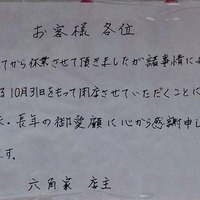 お客様 各位
てから休業させて頂きましたが諸事情によ
る10月31日をもって閉店させていただくことに
、長年の御愛顧に心から感謝申し
す。
六角家 店主